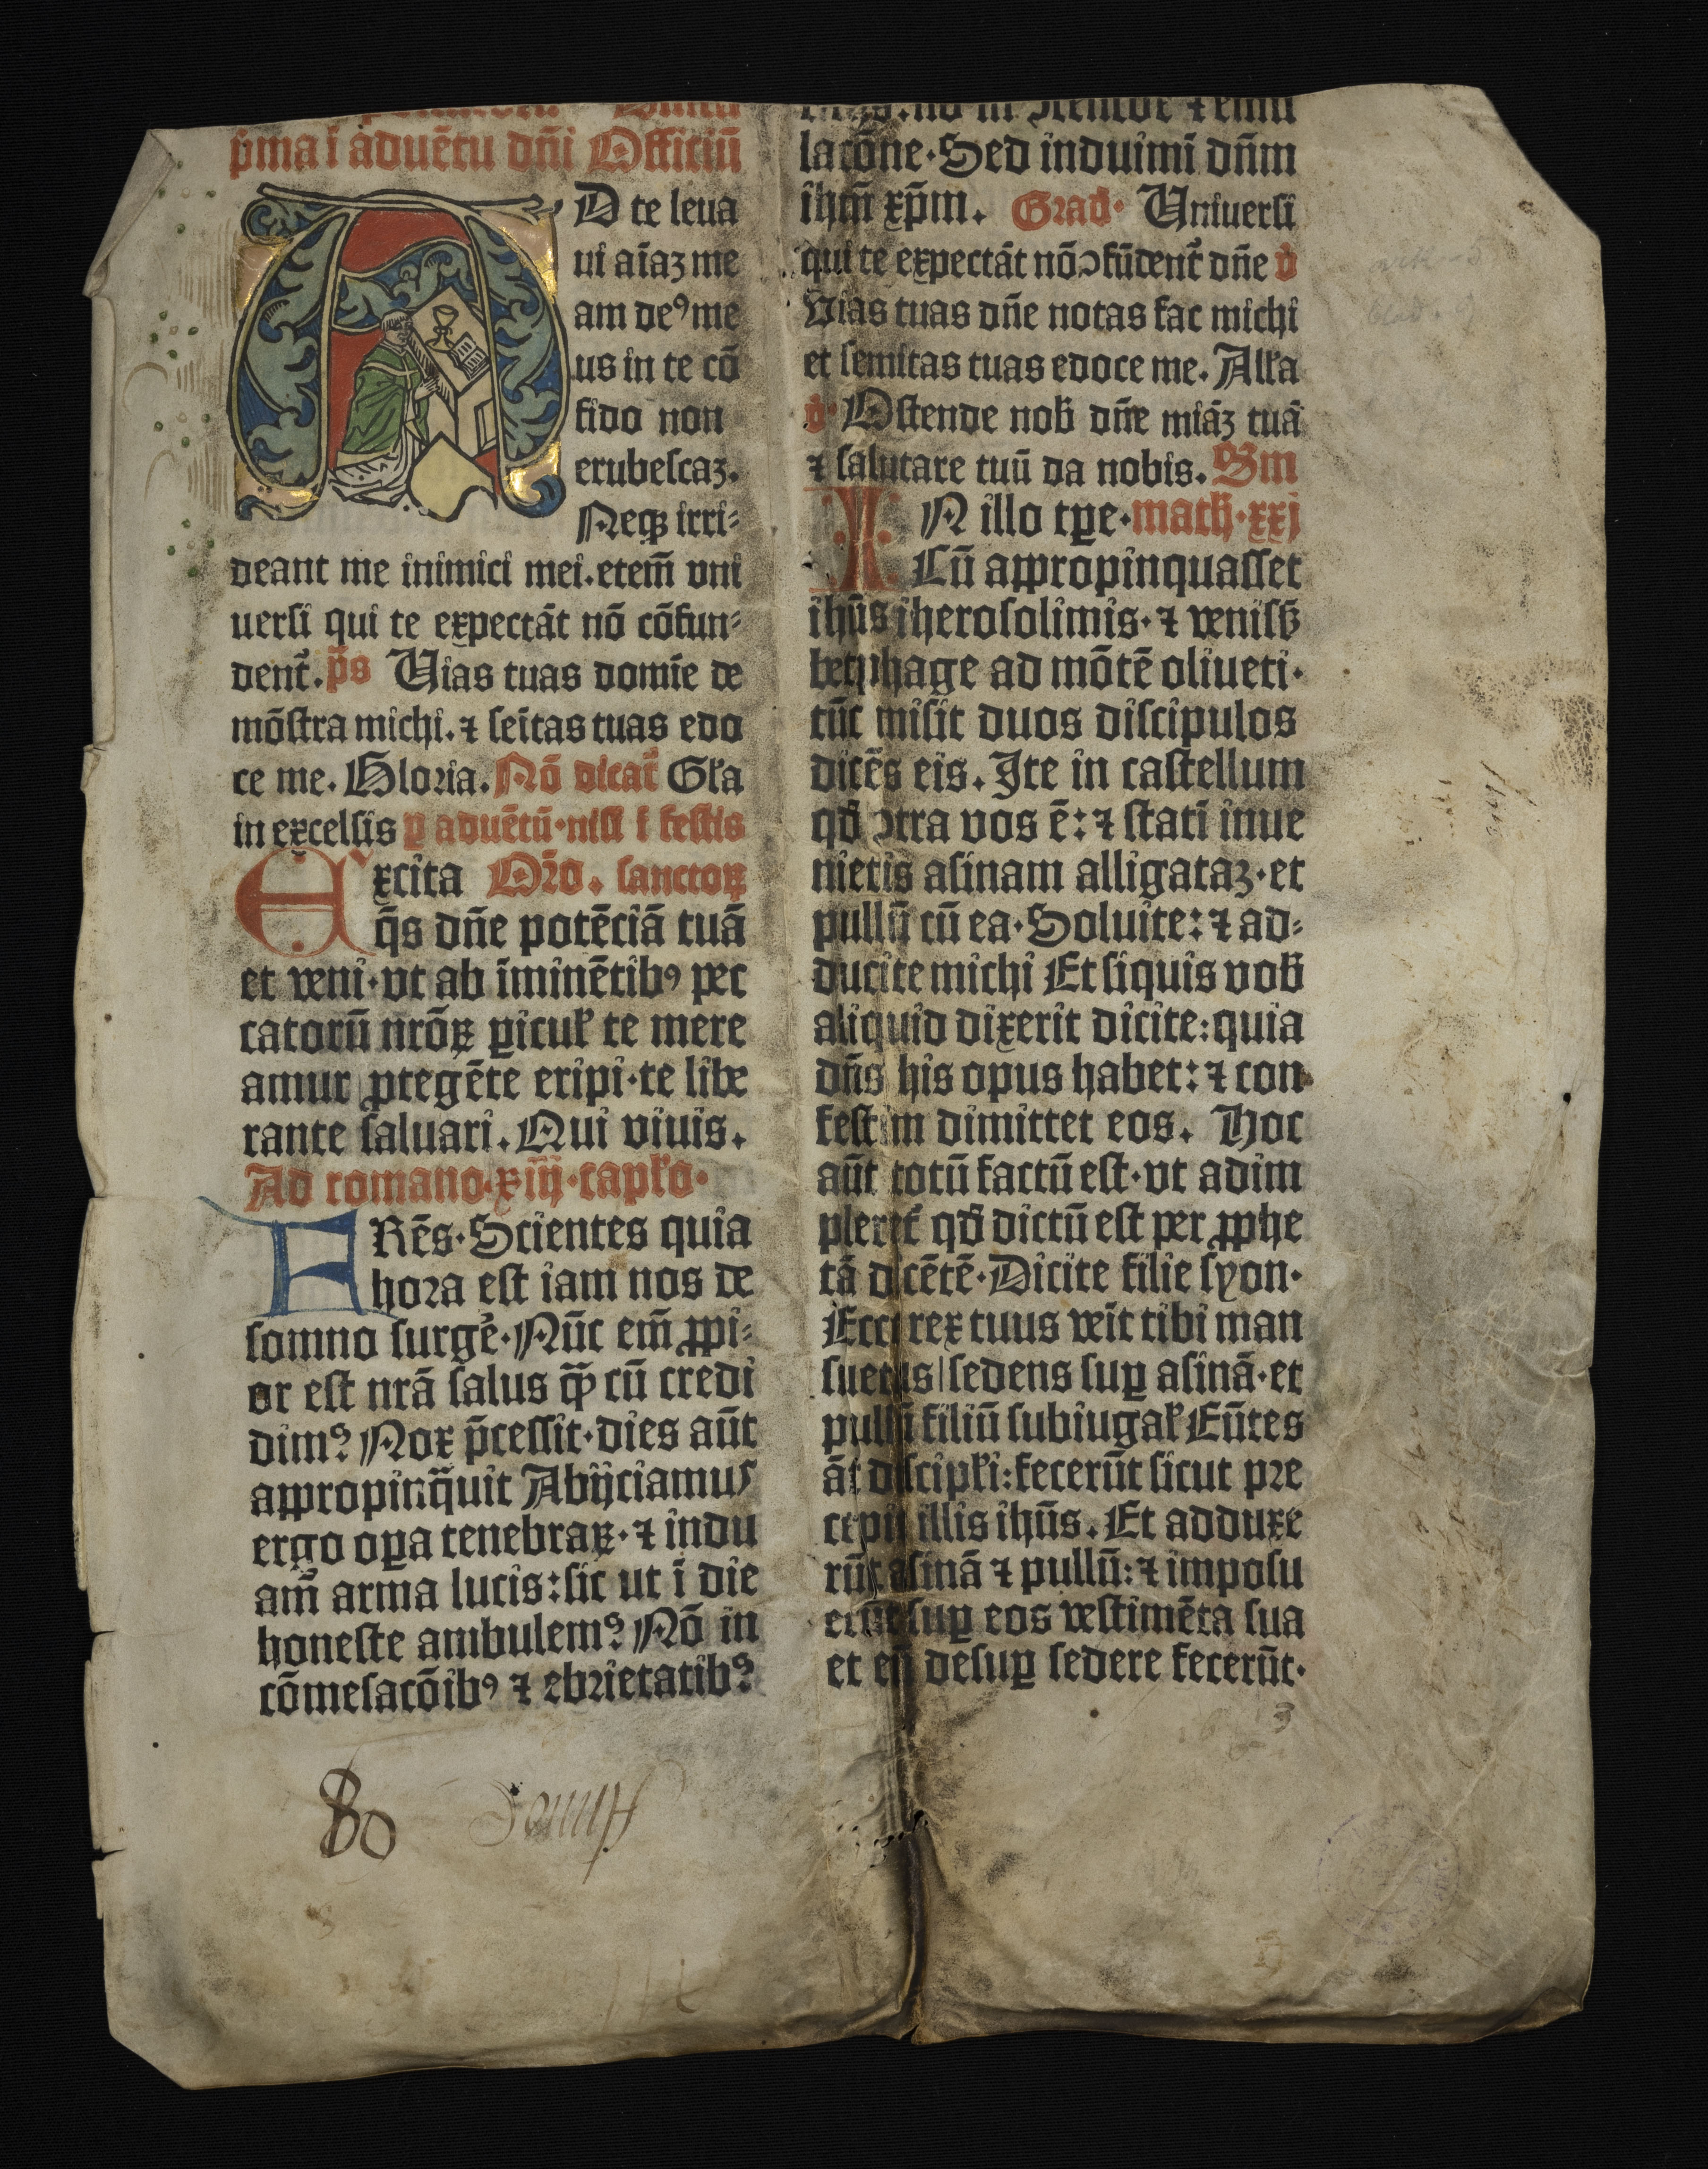 p̄ma ī aduētu dn̄i Officiū
AD te leua
ui aīaꝫ me
am deꝰ me
us in te cō
fido non
erubeſcaꝫ.
Neqꝫ irri⸗
deant me inimici mei.etem̄ vni
uerſi qui te expectāt nō cōfun⸗
dent̄. p̄s Uias tuas domīe de
mōſtra michi.⁊ ſeītas tuas edo
ce me. Gloria. Nō dicat̄ Gl̄a
in excelſis ꝑ aduētū·niſi ī feſtis
Excita Or̄o. ſanctoꝝ
q̄s dn̄e potēciā tuā
et veni·vt ab īminētibꝰ pec
catorū nrōꝝ ꝑicul̄ te mere
amur ꝓtegēte eripi·te libe
rante ſaluari. Qui viuis.
Ad romano·xiij·capl̄o·
FRēs·Scientes quia
hora eſt iam nos de
ſomno ſurgē·Nūc em̄ ꝓpi⸗
or eſt nrā ſalus ꝙ̄ cū credi
dimꝰ Nox p̄ceſſit·dies aūt
appropinq̄uit Abijciamus
ergo oꝑa tenebraꝝ·⁊ indu
am̄ arma lucis:ſic ut ī die
honeſte ambulemꝰ Nō in
cōmeſacōibꝰ ⁊ ebrietatibꝰ
80
lacōne·Sed induimī dn̄m
ihm̄ xp̄m. Grad· Uniuerſi
qui te expectāt nō ↄfūdent̄ dn̄e v̄
Vias tuas dn̄e notas fac michi
et ſemitas tuas edoce me. All̄a
v̄· Oſtende nob̄ dn̄e miāꝫ tuā
⁊ ſalutare tuū da nobis. Sm
IN illo tꝑe·math̄·xxj
Cū appropinquaſſet
ihūs iheroſolimis·⁊ veniſſꝫ
bethhage ad mōtē oliueti·
tūc miſit duos diſcipulos
dicēs eis. Ite in caſtellum
qd̄ ↄtra vos ē:⁊ ſtatī inue
nietis aſinam alligataꝫ·et
pullū cū ea·Soluite:⁊ ad⸗
ducite michi Et ſiquis vob̄
aliquid dixerit dicite:quia
dn̄s his opus habet:⁊ con
feſtim dimittet eos. Hoc
aūt totū factū eſt·vt adim
pleret̄ qd̄ dictū eſt per ꝓphe
tā dicētē·Dicite filie ſyon·
Ecce rex tuus veīt tibi man
ſuetus ſedens ſuꝑ aſinā·et
pullū filiū ſubiugal̄ Eūtes
āt diſcipl̄i:fecerūt ſicut pre
cepit illis ihūs. Et adduxe
rūt aſinā ⁊ pullū:⁊ impoſu
erūt ſuꝑ eos veſtimēta ſua
et eū deſuꝑ ſedere fecerūt·